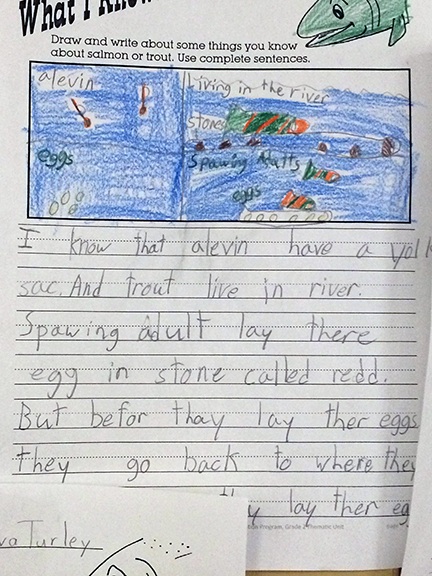 What I Know
Draw and write about some things you know
about salmon or trout. Use complete sentences.
alevin
Living in the river
stones
Spawing Adults
eggs
eggs
I know that alevin have a yolk
sac. And trout live in river.
Spawing adult lay there
egg in stone called redd.
But befor thay lay ther eggs
they go back to where they
lay ther eg
Turley
Program, Grade 2 Thematic Unit